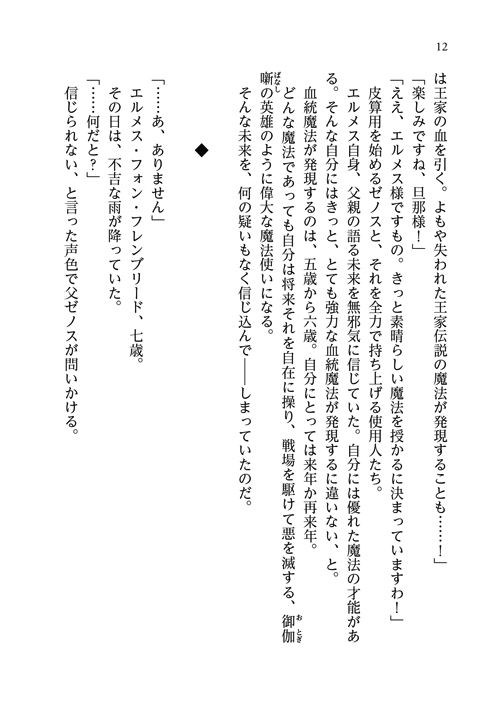 12
は王家の血を引く。よもや失われた王家伝説の魔法が発現することも……！」
「楽しみですね、旦那様！」
「ええ、エルメス様ですもの。きっと素晴らしい魔法を授かるに決まっていますわ！」
皮算用を始めるゼノスと、それを全力で持ち上げる使用人たち。
エルメス自身、父親の語る未来を無邪気に信じていた。自分には優れた魔法の才能があ
る。そんな自分にはきっと、とても強力な血統魔法が発現するに違いない、と。
血統魔法が発現するのは、五歳から六歳。自分にとっては来年か再来年。
どんな魔法であっても自分は将来それを自在に操り、戦場を駆けて悪を滅する、御伽
噺の英雄のように偉大な魔法使いになる。
そんな未来を、何の疑いもなく信じ込んで――しまっていたのだ。
◆
「……あ、ありません」
エルメス・フォン・フレンブリード、七歳。
その日は、不吉な雨が降っていた。
「……何だと？」
信じられない、と言った声色で父ゼノスが問いかける。